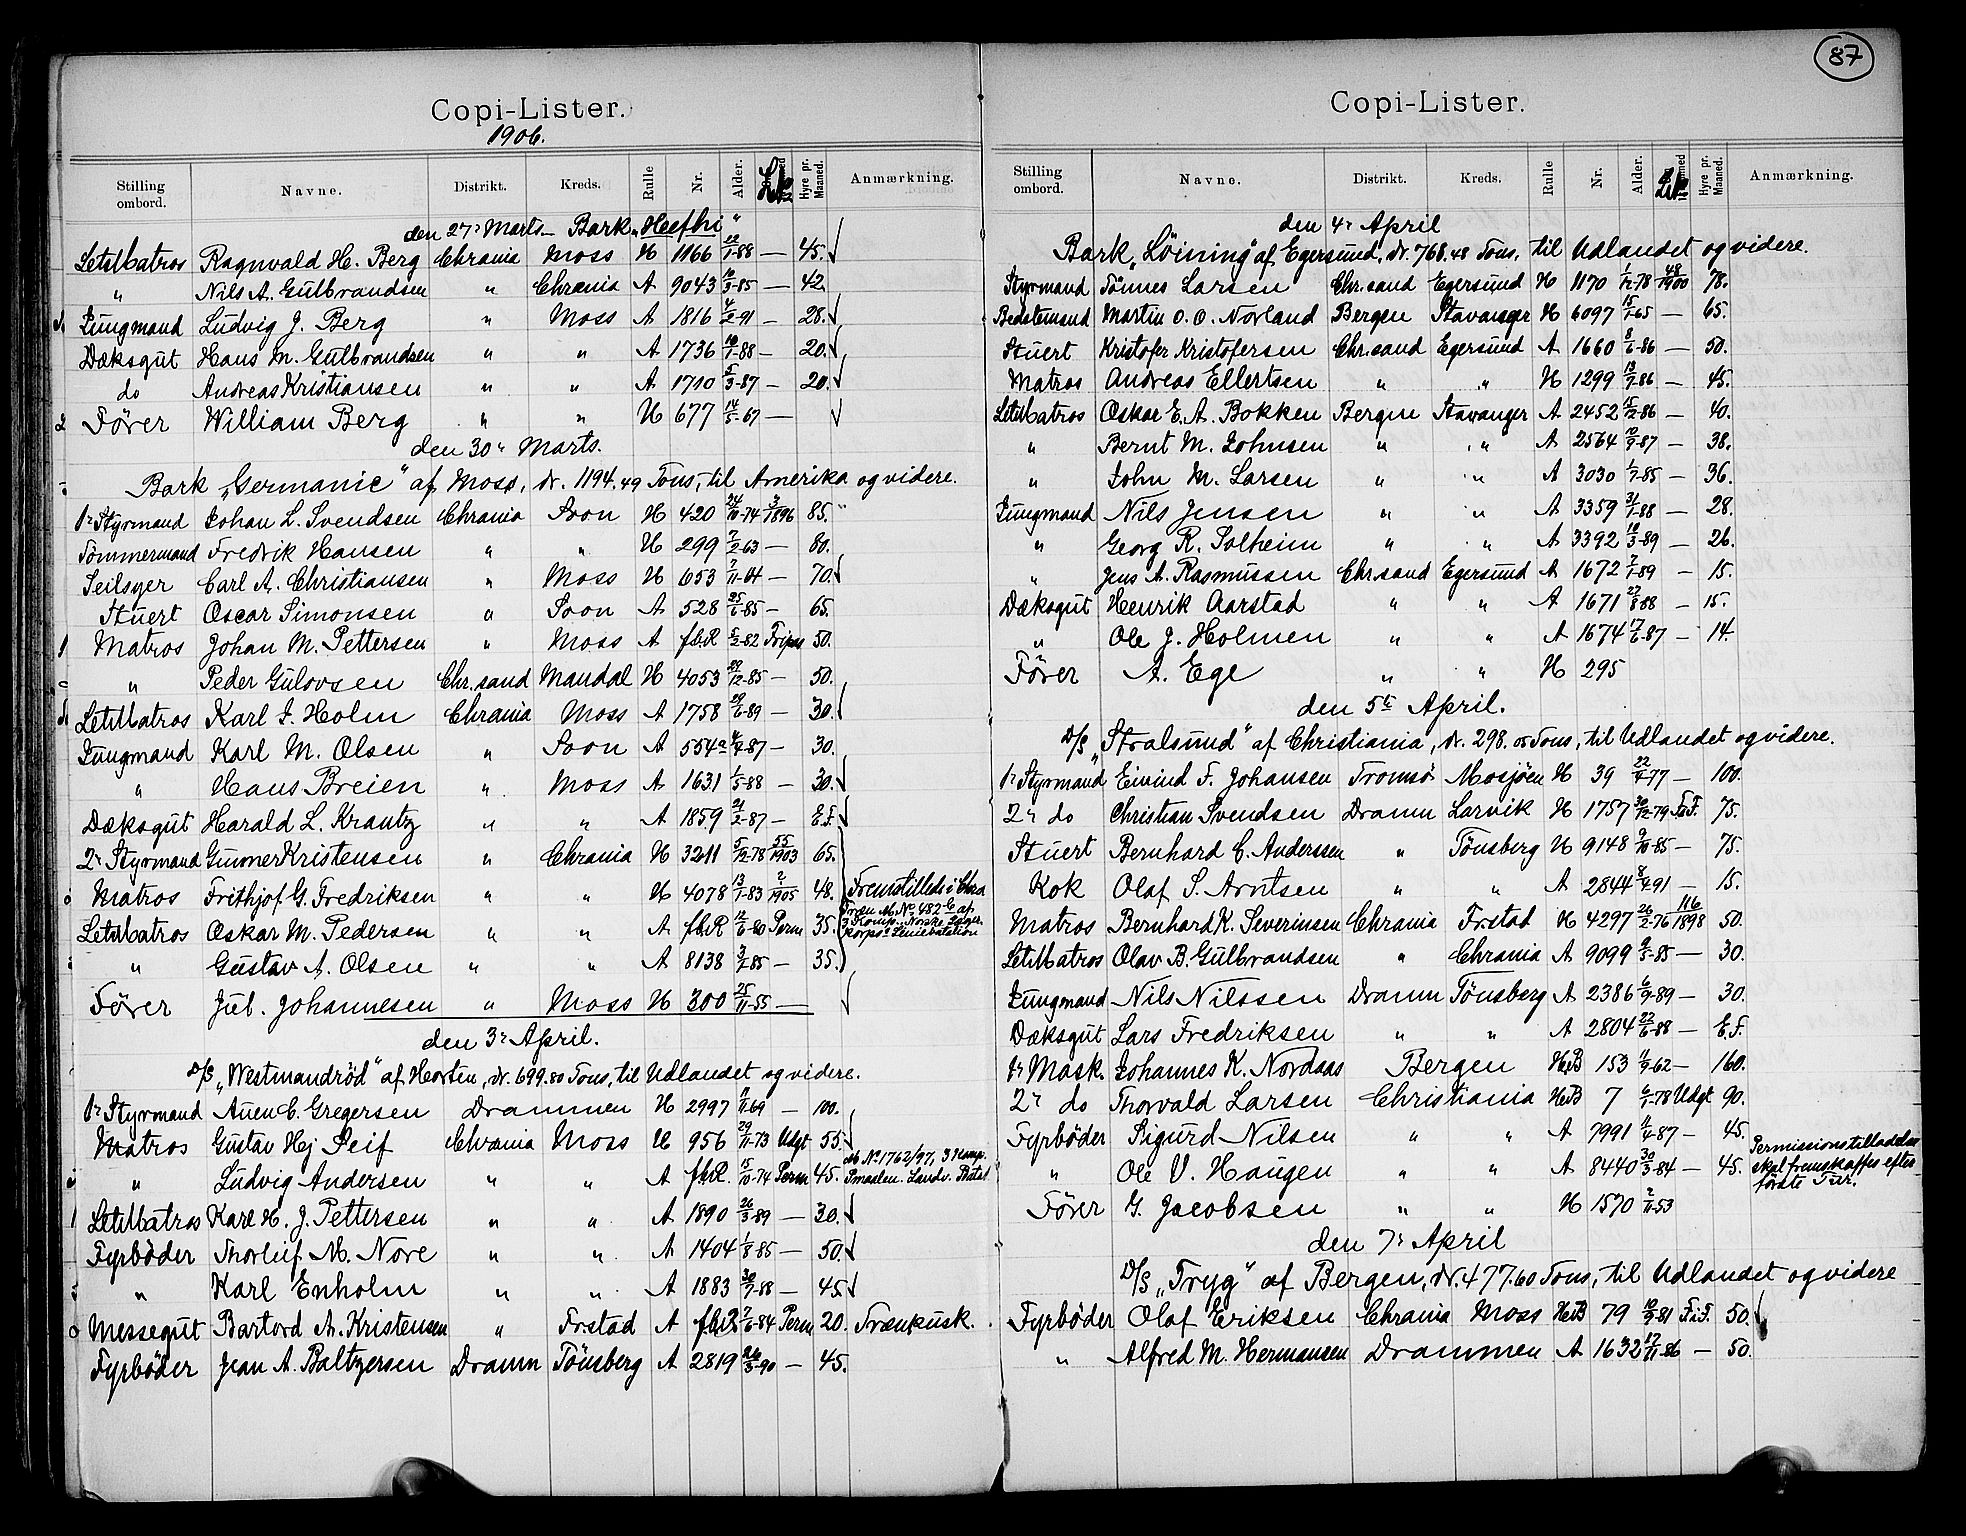 Copi-Lister.
1906.
Stilling ombord. Navne. Distrikt. Kreds. Rulle Nr. Alder. Hyre pr. Maaned. Anmærkning.
den 27. Marts Bark „Heefhi"
LetMatros Ragnvald H. Berg Chrania Moss H 1166 22/1-88 — 45.
" Nils A. Gulbrandsen " Chrania A 9043 10/9-85 — 42.
Jungmand Ludvig J. Berg " Moss A 1816 4/2-91 — 28.
Dæksgut Hans M. Gulbrandsen " " A 1736 10/1-88 — 20.
do Andreas Kristiansen " " A 1710 5/3-87 — 20.
Förer William Berg " " H 677 14/5-67 —
den 30" Marts.
Bark „Germanic" af Moss, dr. 1194.49 Tons, til Amerika og videre.
1ste Styrmand Johan L. Svendsen Chrania Soon H 420 24/10-74 3/1896 85.
Tömmermand Fredrik Hansen " " H 299 7/2-63 — 80.
Seilsyer Carl A. Christiansen " Moss H 653 7/11-64 — 70.
Stuert Oscar Simonsen " Soon A 528 25/6-85 — 65.
Matros Johan M. Pettersen " Moss A f.b.R 5/2-82 Fripas 50.
" Peder Gulovsen Chr.sand Mandal H 4053 29/12-85 — 50.
LetMatros Karl J. Holm Chrania Moss A 1758 29/6-89 — 30.
Jungmand Karl M. Olsen " Soon A 554a 4/4-87 — 30.
" Hans Breien " Moss A 1631 1/5-88 — 30.
Dæksgut Harald L. Krantz " " A 1859 21/2-87 — E.F.
2" Styrmand Gunner Kristensen " Chrania H 3211 5/12-78 55/1903 65.
Matros Frithjof G. Fredriksen " " H 4078 13/1-83 2/1905 48. Fremstilledes i Chra
LetMatros Oskar M. Pedersen " " A f.b.R 12/6-80 Perm 35.
" Gustav A. Olsen " " A 8138 9/7-85 — 35.
Förer Jul. Johannesen " Moss H 300 25/11-55 —
den 3" April.
D/S „Westmandröd" af Horten, dr. 699.80 Tons, til Udlandet og videre.
1ste Styrmand Auen C. Gregersen Drammen H 2997 1/11-69 — 100.
Matros Gustav Hej Seif Chrania Moss H 956 29/11-73 Udgt 55.
" Ludvig Andersen " " A f.b.R. 15/10-74 Perm 45. M No. 1762/97, 3 Komp. Smaalen. Landv. Batal
LetMatros Karl H. J. Pettersen " " A 1890 26/3-89 — 30.
Fyrböder Thorleif M. Nore " " A 1404 1/8-85 — 50.
" Karl Enholm " " A 1883 30/7-88 — 45.
Messegut Bartord A. Kristensen " Frstad A f.b.R 7/6-84 Perm 20. Trænkusk.
Fyrböder Jean A. Baltzersen Dramn Tönsberg A 2819 26/5-90 — 45.
87
Copi-Lister.
Stilling ombord. Navne. Distrikt. Kreds. Rulle Nr. Alder. Hyre pr. Maaned. Anmærkning.
den 4" April
Bark „Löining" af Egersund, dr. 768.48 Tons, til Udlandet og videre.
Styrmand Tönnes Larsen Chr.sand Egersund H 1170 1/12-78 48/1900 78.
Bedstemand Martin O. O. Norland Bergen Stavanger H 6097 15/1-65 — 65.
Stuert Kristofer Kristofersen Chr.sand Egersund A 1660 8/6-86 — 50.
Matros Andreas Ellertsen " " H 1299 13/7-86 — 45.
LetMatros Oskar E. A. Bokken Bergen Stavanger A 2452 15/12-86 — 40.
" Bernt M. Johnsen " " A 2564 12/9-87 — 38.
" John M. Larsen " " A 3030 1/7-85 — 36.
Jungmand Nils Jensen " " A 3359 31/1-88 — 28.
" Georg R. Solheim " " A 3392 18/3-89 — 26.
" Jens A. Rasmussen Chr.sand Egersund A 1672 7/1-89 — 15.
Dæksgut Henrik Aarstad " " A 1671 27/8-88 — 15.
" Ole J. Holmen " " A 1674 17/6-87 — 14.
Förer A. Ege " " H 295
den 5te April.
D/S „Stralsund" af Christiania, dr. 298.05 Tons, til Udlandet og videre.
1ste Styrmand Eivind F. Johansen Tromsö Mosjöen H 39 22/4-77 — 100.
2" do Christian Svendsen Dramn Larvik H 1757 30/12-79 F.F. 75.
Stuert Bernhard C. Anderssen " Tönsberg H 9148 9/10-85 — 75.
Kok Olaf S. Arntsen " " A 2844 8/4-91 — 15.
Matros Bernhard K. Severinsen Chrania Frstad H 4297 26/2-76 116/1898 50.
LetMatros Olav B. Gulbrandsen " Chrania A 9099 9/5-85 — 30.
Jungmand Nils Nilssen Dramn Tönsberg A 2386 6/9-89 — 30.
Dæksgut Lars Fredriksen " " A 2804 22/6-88 — E.F.
1ste Mask. Johannes K. Nordaas Bergen HxB 153 6/9-62 — 160.
2" do Thorvald Larsen Christiania HxB 7 6/1-78 Udgt 90.
Fyrböder Sigurd Nilsen " " A 7991 1/4-87 — 45.
" Ole V. Haugen " " A 8440 30/3-84 — 45. Permissionstilladelse skal fremskaffes efter förste Tur.
Förer G. Jacobsen " " H 1570 2/11-53
den 7" April
D/S „Tryg" af Bergen, dr. 477.60 Tons, til Udlandet og videre
Fyrböder Olaf Eriksen Chrania Moss HxB 79 10/9-81 F.F. 50.
" Alfred M. Hermansen Drammen A 1632 17/11-86 — 50.